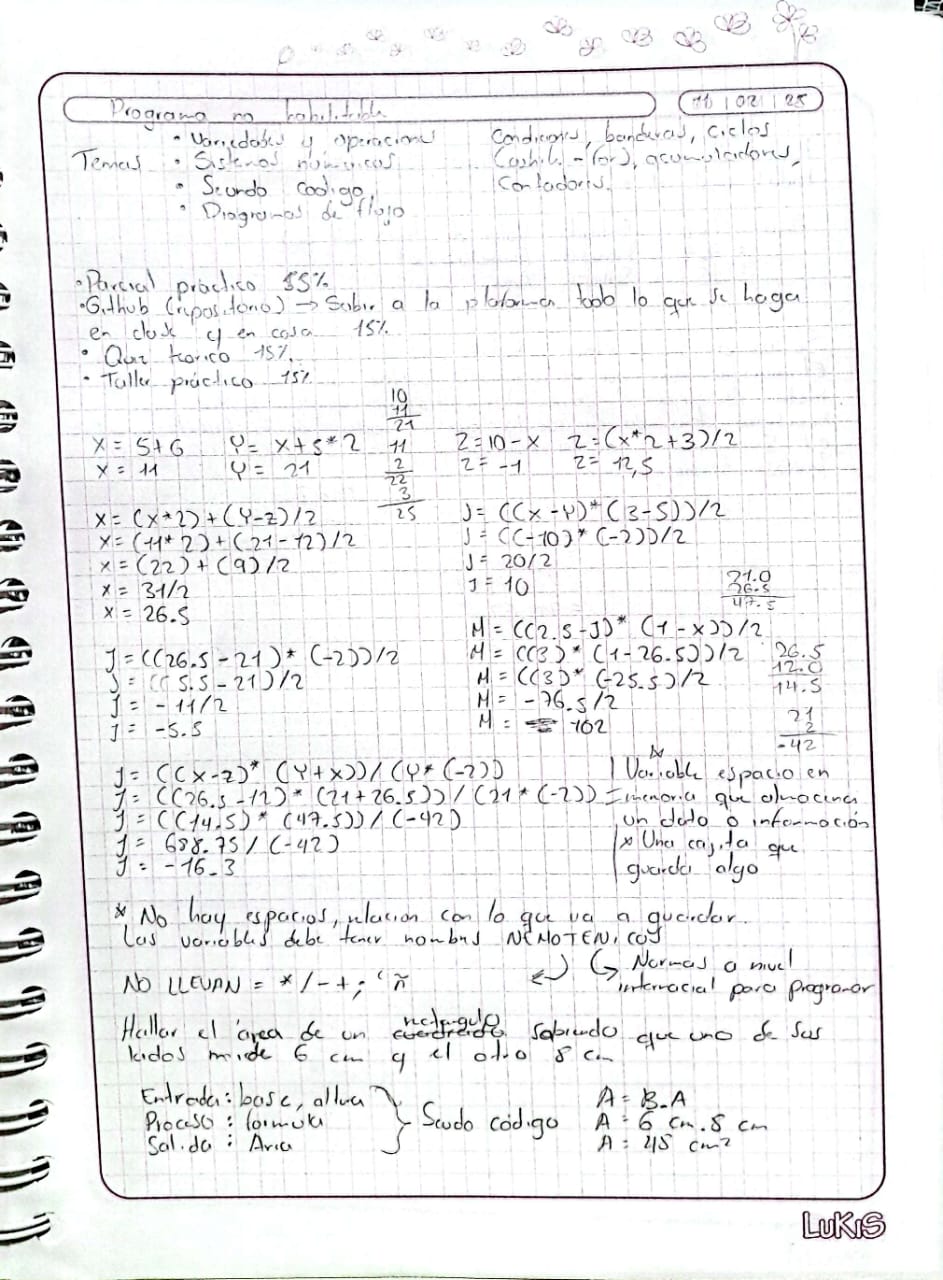 Programa no habilitable
11 | 02 | 25
• Variedades y operaciones
Temas • Sistemas numericos
• Seundo codigo
• Diagramas de flujo
Condiciones, banderas, ciclos
(while - for), acumuladores,
Contadores.
• Parcial práctico 55%
• Github (repositorio) → Subir a la plataforma todo lo que se haga
en clase y en casa 15%
• Quiz teorico 15%
• Taller práctico 15%
10
11
21
X = 5+6 Y= X+5*2
X = 11 Y = 21
11
2
22
3
25
Z=10-X Z=(x*2+3)/2
Z= -1 Z= 12,5
X= (X*2)+(Y-Z)/2
X= (11*2)+(21-12)/2
X= (22)+(9)/2
X= 31/2
X= 26.5
J= ((X-Y)*(3-5))/2
J= ((-10)*(-2))/2
J= 20/2
J= 10
21.0
26.5
47.5
J=((26.5-21)*(-2))/2
J= ((5.5-21)/2
J= -11/2
J= -5.5
M= ((2.5-J)*(1-X))/2
M= ((3)*(1-26.5))/2
M= ((3)*(-25.5)/2
M= -76.5/2
M= 102
26.5
12.0
14.5
21
2
-42
J= ((X-Z)*(Y+X))/(Y*(-2))
J= ((26.5-12)*(21+26.5))/(21*(-2))
J= ((14.5)*(47.5))/(-42)
J= 688.75/(-42)
J= -16.3
* Variable espacio en
memoria que almacena
un dato o información
* Una cajita que
guarda algo
* No hay espacios, relacion con lo que va a guardar.
Las variables debe tener nombres NEMOTENICOS
NO LLEVAN = * / - + ; ' ñ
Normas a nivel
internacial para programar
Hallar el área de un rectangulo sabiendo que uno de sus
lados mide 6 cm y el otro 8 cm
Entrada: base, altura
Proceso: formula
Salida: Area
Seudo código
A = B.A
A = 6 cm. 8 cm
A = 48 cm²
LUKIS